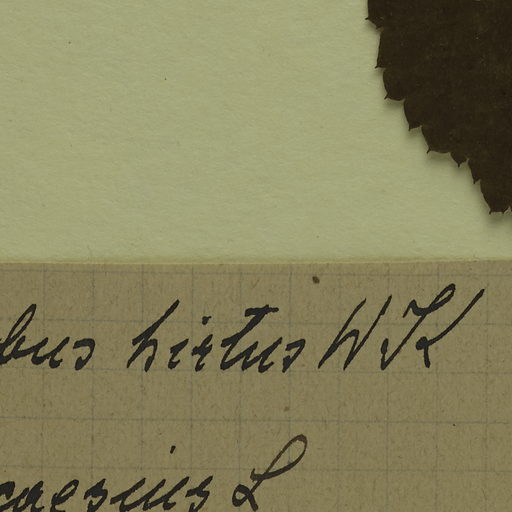 bus hirtus WK
caesius L